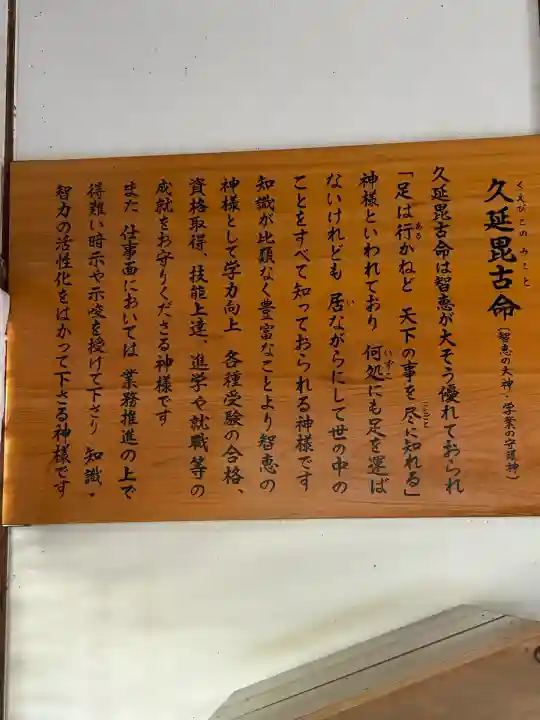 久延毘古命（智恵の大神・学業の守護神）
くえびこのみこと
久延毘古命は智恵が大そう優れておられ
「足は行かねど 天下の事を尽に知れる」
ある
ことごと
神様といわれており 何処にも足を運ば
いずこ
ないけれども 居ながらにして世の中の
い
ことをすべて知っておられる神様です
知識が比類なく豊富なことより智恵の
神様として学力向上 各種受験の合格、
資格取得、技能上達、進学や就職等の
成就をお守りくださる神様です
また 仕事面においては 業務推進の上で
得難い時示や示唆を授けて下さり 知識・
智力の活性化をはかって下さる神様です